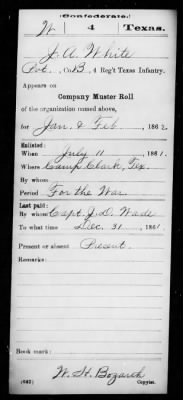 (Confederate.)
W 4 Texas.
J. A. White
Pvt., Co. B, 4 Reg't Texas Infantry.
Appears on
Company Muster Roll
of the organization named above,
for Jan. & Feb., 1862.
Enlisted:
When July 11, 1861.
Where Camp Clark, Tex.
By whom
Period For the War.
Last paid:
By whom Capt. J. D. Wade
To what time Dec. 31, 1861.
Present or absent Present.
Remarks:
Book mark:
W. H. Bozarch
(642) Copyist.